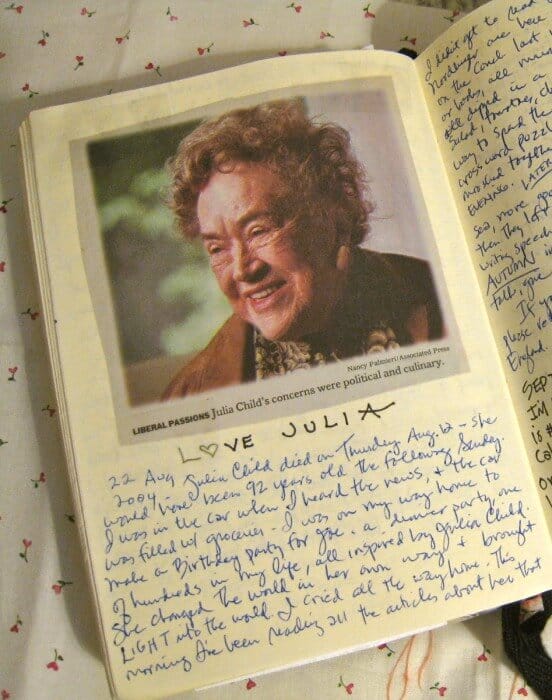 Nancy Palmieri/Associated Press
LIBERAL PASSIONS Julia Child's concerns were political and culinary.
LOVE JULIA
22 Aug Julia Child died on Thursday Aug. 12 – she
2004 would have been 92 years old the following Sunday.
I was in the car when I heard the news, & the car
was filled w/ groceries – I was on my way home to
make a Birthday party for Joe. a dinner party, one
of hundreds in my life, all inspired by Julia Child.
She changed the world in her own way & brought
LIGHT into the world. I cried all the way home. This
morning I've been reading all the articles about her that
I didn't get to read
on the couch last
or books, all
salad, tomatoes,
way to spend the
cross word
EVENING.
see more
then they
writing
AUTUMN
If
please
England.
SEP